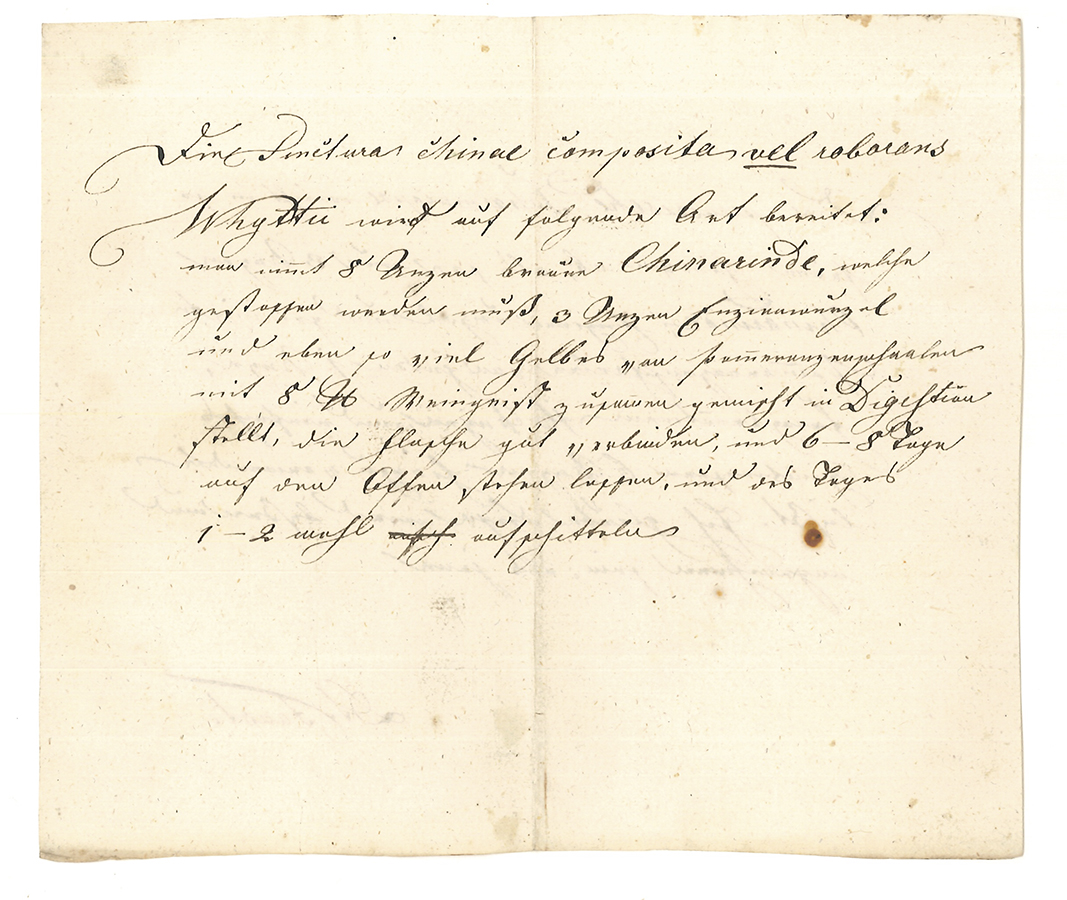 Die Tinctura Chinae composita vel roborans
Whyttii wird auf folgende Art bereitet:
man nimt 8 Unzen braune Chinarinde, welche
gestossen werden muß, 3 Unzen Enzianwurzel
und eben so viel Gelbes von Pommeranzenschaalen
mit 8 ℔ Weingeist zusamen gemischt in Digestion
stellt, die Flasche gut verbinden, und 6 – 8 Tage
auf den Offen stehen lassen, und des Tages
1 – 2 mahl aufschitteln